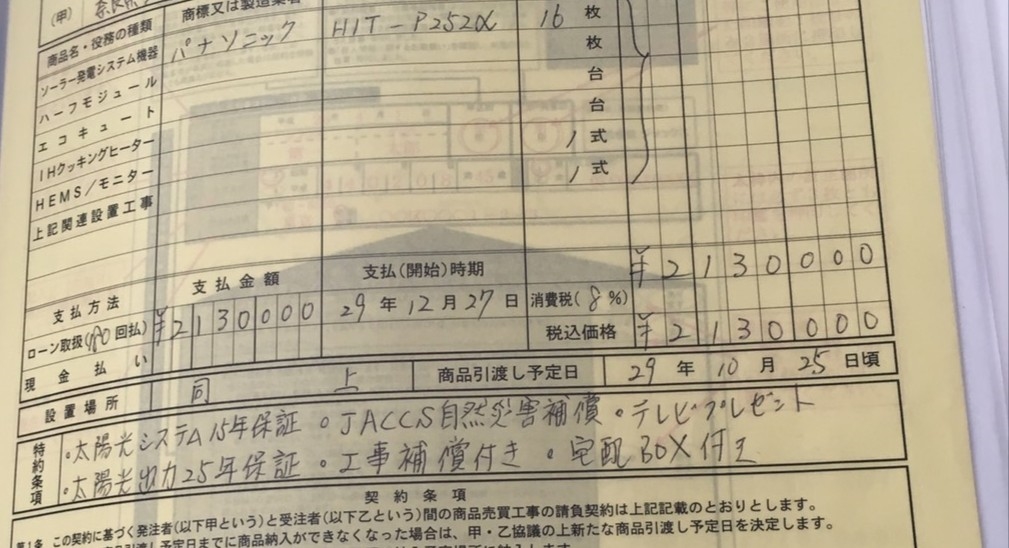 (甲)
商品名・役務の種類 商標又は製造業者
ソーラー発電システム機器 パナソニック HIT-P252α 16 枚
ハーフモジュール 枚
エコキュート 台
IHクッキングヒーター 台
HEMS/モニター 1 式
上記関連設置工事 1 式
¥2130000
支払方法 支払金額 支払(開始)時期
ローン取扱(180回払) ¥2130000 29年12月27日 消費税(8%)
現金払い 税込価格 ¥2130000
設置場所 同上 商品引渡し予定日 29年10月25日頃
特約条項 ・太陽光システム15年保証 ・JACCS自然災害補償 ・テレビプレゼント
・太陽光出力25年保証 ・工事補償付き ・宅配BOX付き
契約条項
第1条 この契約に基づく発注者(以下甲という)と受注者(以下乙という)間の商品売買工事の請負契約は上記記載のとおりとします。
商品引渡し予定日までに商品納入ができなくなった場合は、甲・乙協議の上新たな商品引渡し予定日を決定します。